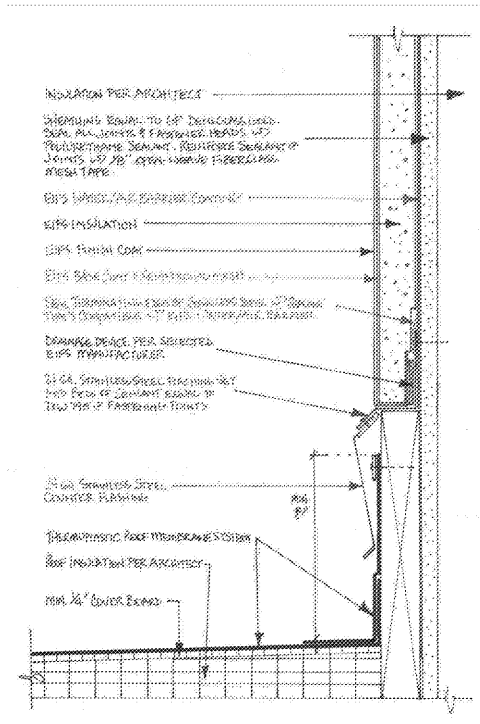 INSULATION PER ARCHITECT
SHEATHING EQUAL TO 5/8" DENSGLASS GOLD.
SEAL ALL JOINTS & FASTENER HEADS W/
POLYURETHANE SEALANT. REINFORCE SEALANT @
JOINTS W/ OPEN WEAVE FIBERGLASS
MESH TAPE
EIFS WATER/AIR BARRIER COATING
EIFS INSULATION
EIFS FINISH COAT
EIFS BASE COAT & REINFORCING MESH
SEAL TERMINATION EDGE OF
DRAINAGE DEVICE PER SELECTED
EIFS MANUFACTURER
24 GA. STAINLESS STEEL FLASHING SET
INTO BEAD OF SEALANT
@ FASTENING POINTS
24 GA. STAINLESS STEEL
COUNTER FLASHING
MIN.
8"
THERMOPLASTIC ROOF MEMBRANE SYSTEM
ROOF INSULATION PER ARCHITECT
MIN. 1/4" COVER BOARD